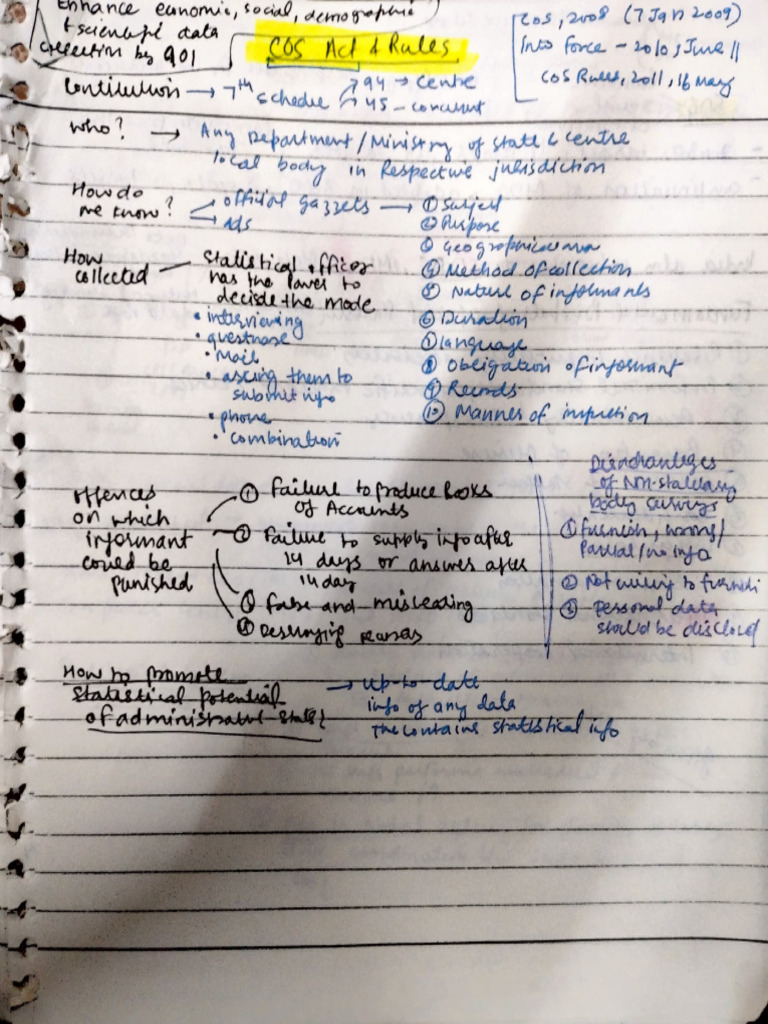 Enhance economic, social, demographic
+ scientific data
collection by GOI
COS Act & Rules
COS, 2008 (7 Jan 2009)
Into force - 2010, June 11
COS Rules, 2011, 16 May
Constitution → 7th schedule
94 → centre
45 - concurrent
Who? → Any Department/Ministry of state & centre
local body in Respective jurisdiction
How do we know?
official gazzets
Ads
① Subject
② Purpose
③ Geographical area
④ Method of collection
⑤ Nature of informants
⑥ Duration
⑦ language
⑧ Obligation of informant
⑨ Records
⑩ Manner of
How collected - Statistical officer
has the power to
decide the mode
• interviewing
•
• mail
• asking them to
submit info
• phone
• combination
offences
on which
informant
could be
punished
① Failure to produce Books
of Accounts
② Failure to supply info after
14 days or answer after
14 day
③ False and misleading
④ Destroying
Disadvantages
of Non-statutory
body surveys
① furnish, wrong/
Partial/no info
② Not willing to furnish
③ Personal data
should be disclosed
How to promote
statistical potential
of
→ up-to-date
info of any data
contains statistical info